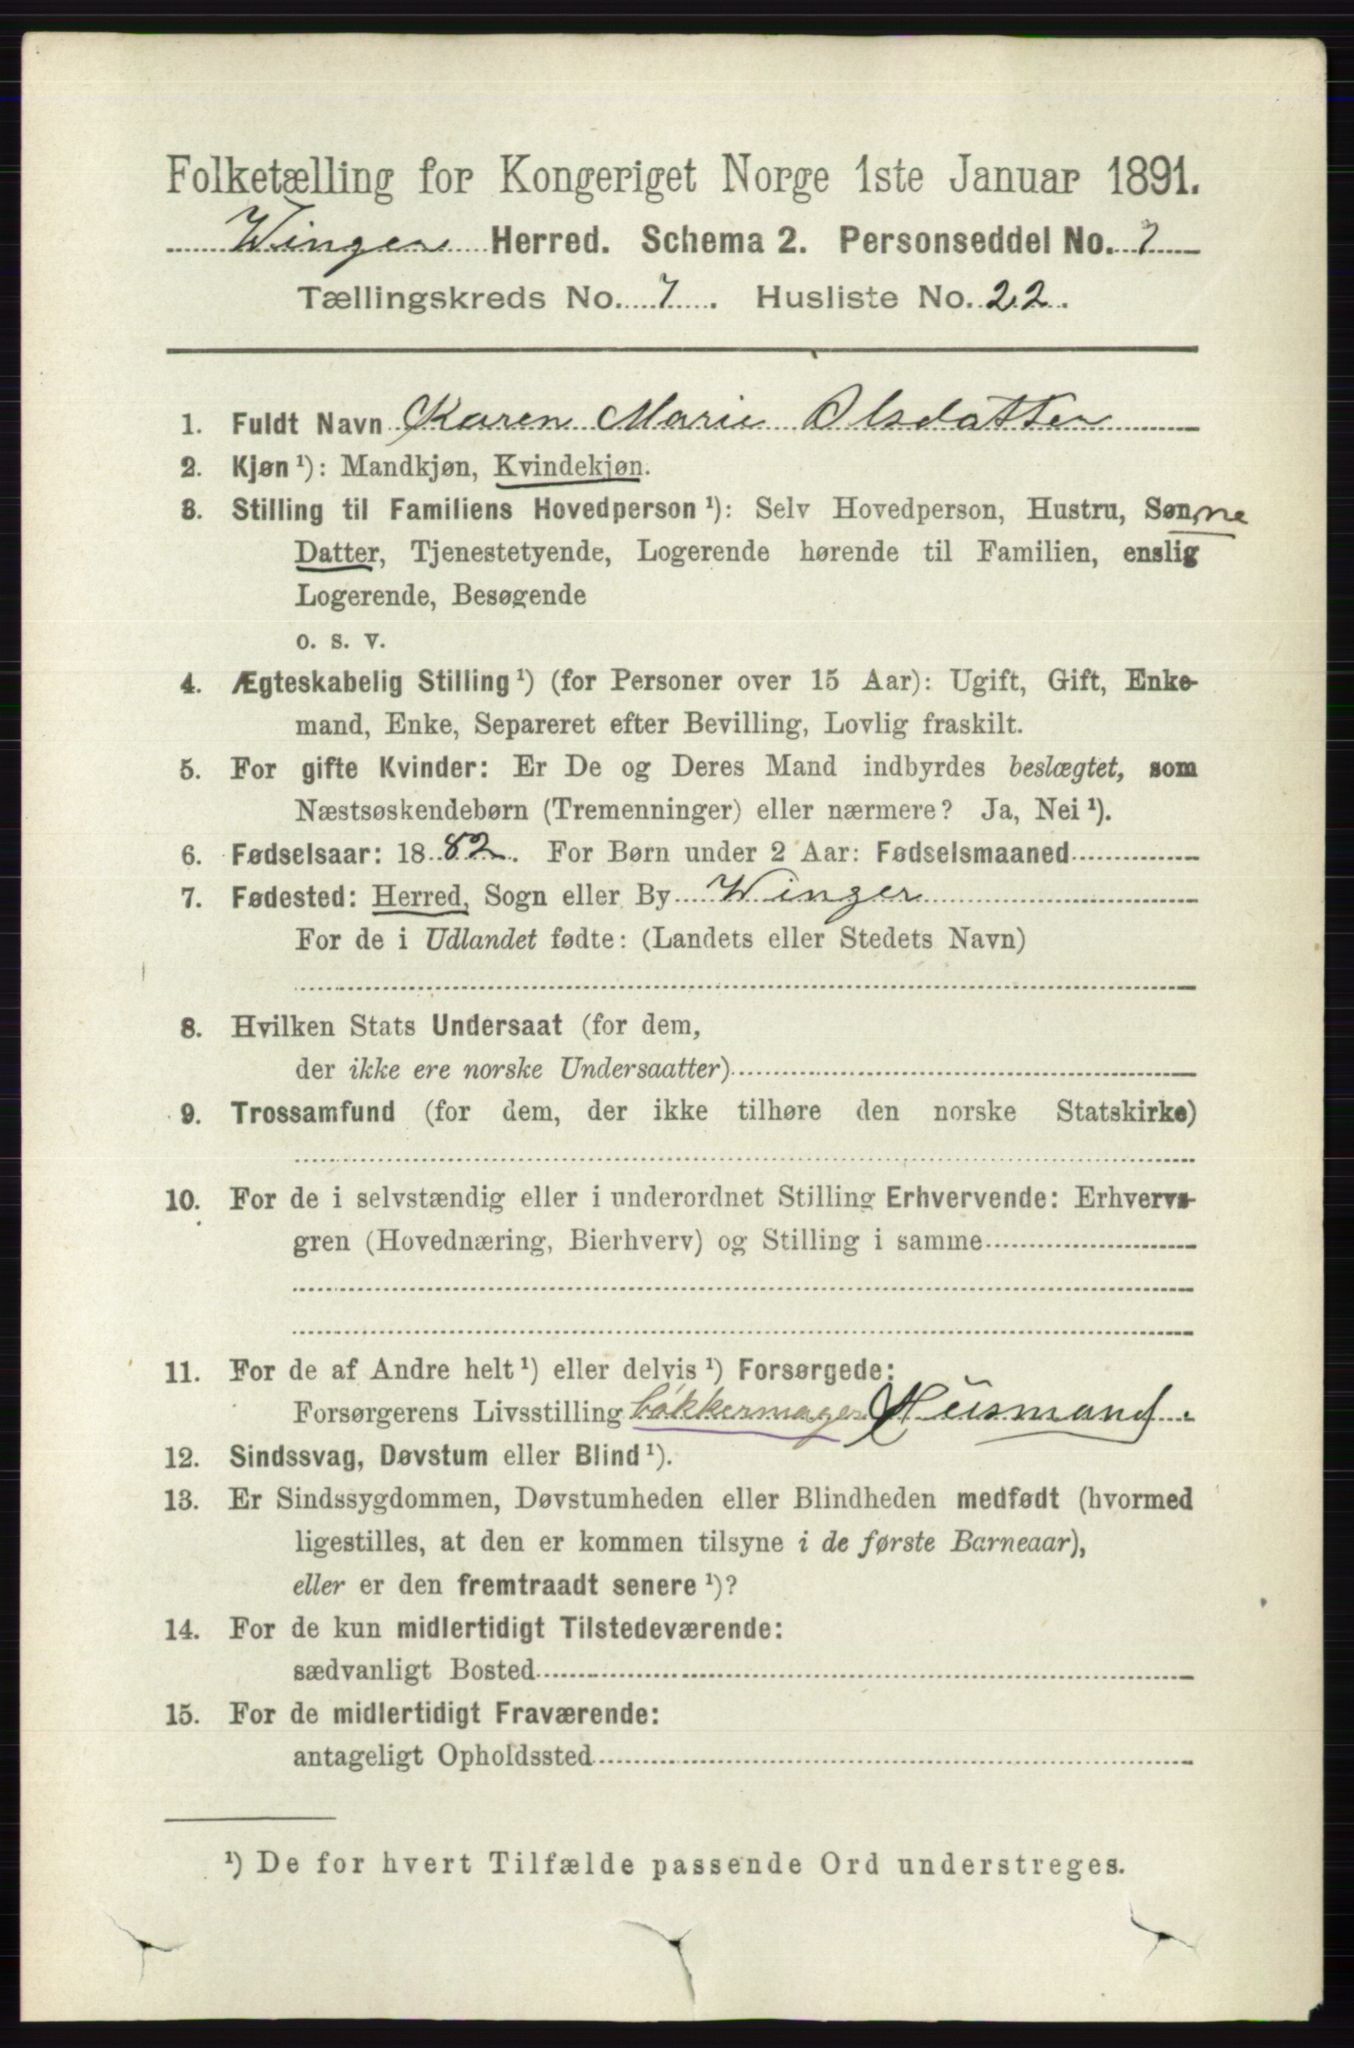 Folketælling for Kongeriget Norge 1ste Januar 1891.
Winger Herred. Schema 2. Personseddel No. 7
Tællingskreds No. 7. Husliste No. 22.
1. Fuldt Navn Karen Marie Olsdatter
2. Kjøn ¹): Mandkjøn, Kvindekjøn.
3. Stilling til Familiens Hovedperson ¹): Selv Hovedperson, Hustru, Sønne
Datter, Tjenestetyende, Logerende hørende til Familien, enslig
Logerende, Besøgende
o. s. v.
4. Ægteskabelig Stilling ¹) (for Personer over 15 Aar): Ugift, Gift, Enke-
mand, Enke, Separeret efter Bevilling, Lovlig fraskilt.
5. For gifte Kvinder: Er De og Deres Mand indbyrdes beslægtet, som
Næstsøskendebørn (Tremenninger) eller nærmere? Ja, Nei ¹).
6. Fødselsaar: 1882. For Børn under 2 Aar: Fødselsmaaned
7. Fødested: Herred, Sogn eller By Winger
For de i Udlandet fødte: (Landets eller Stedets Navn)
8. Hvilken Stats Undersaat (for dem,
der ikke ere norske Undersaatter)
9. Trossamfund (for dem, der ikke tilhøre den norske Statskirke)
10. For de i selvstændig eller i underordnet Stilling Erhvervende: Erhvervs-
gren (Hovednæring, Bierhverv) og Stilling i samme
11. For de af Andre helt ¹) eller delvis ¹) Forsørgede:
Forsørgerens Livsstilling bøkkermager Husmand.
12. Sindssvag, Døvstum eller Blind ¹).
13. Er Sindssygdommen, Døvstumheden eller Blindheden medfødt (hvormed
ligestilles, at den er kommen tilsyne i de første Barneaar),
eller er den fremtraadt senere ¹)?
14. For de kun midlertidigt Tilstedeværende:
sædvanligt Bosted
15. For de midlertidigt Fraværende:
antageligt Opholdssted
¹) De for hvert Tilfælde passende Ord understreges.